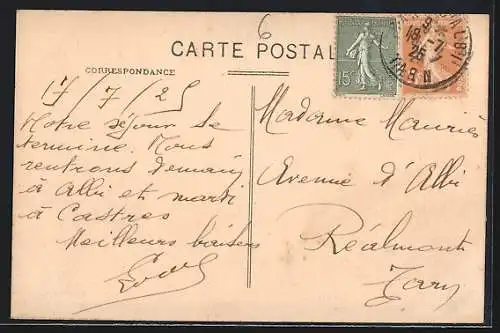 6
CARTE POSTALE
CORRESPONDANCE
15
17/7/25
Notre séjour se
termine. Nous
rentrons demain
à Albi et mardi
à Castres
Meilleurs baisers
Madame Mauriès
Avenue d'Albi
Réalmont
Tarn
18
25
TARN